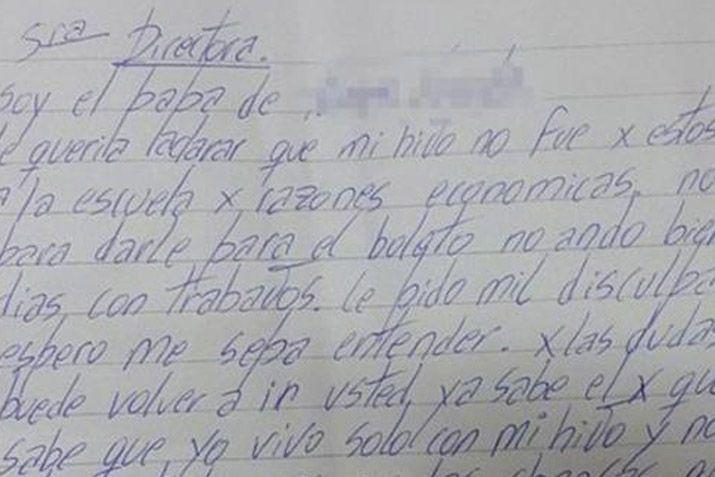 Sra Directora.
soy el papa de
le queria aclarar que mi hivo no fue x estos
a la escuela x razones economicas. no
para darle para el boleto no ando bien
dias con trabavos. le pido mil disculpa
espero me sepa entender. x las dudas
puede volver a ir usted ya sabe el x qu
sabe que yo vivo solo con mi hivo y no